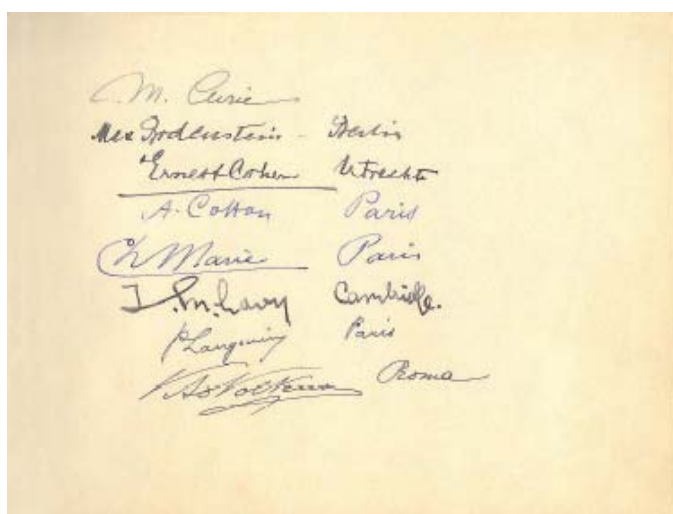 M. Curie
Max Bodenstein - Berlin
Ernst Cohen Utrecht
A. Cotton Paris
Ch Marie Paris
T. M. Lowry Cambridge.
P Langevin Paris
Vito Volterra Roma